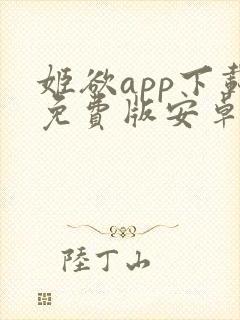 姬欲app下載
免費版安卓
陸丁山